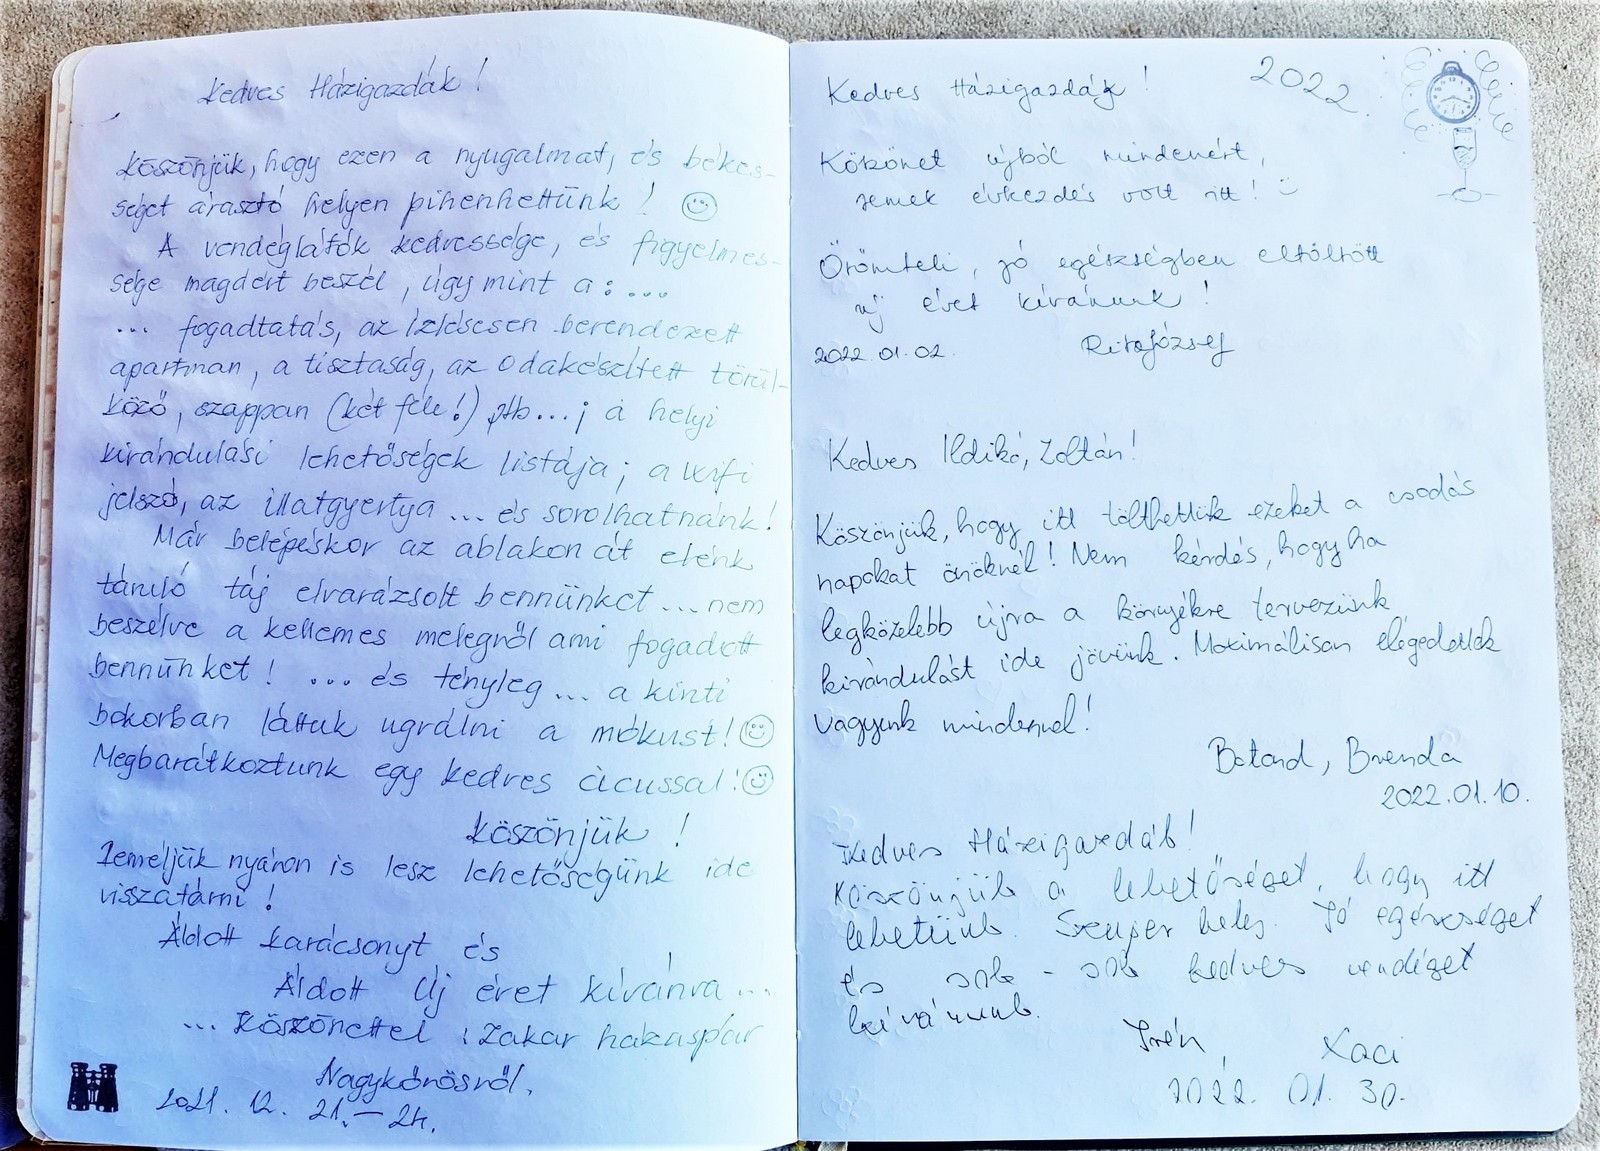 Kedves Házigazdák!
Köszönjük, hogy ezen a nyugalmat, és békes-
séget árasztó helyen pihenhettünk!
A vendéglátók kedvessége, és figyelmes-
sége magáért beszél, úgy mint a: ...
... fogadtatás, az ízlésesen berendezett
apartman, a tisztaság, az odakészített törül-
köző, szappan (két féle!) stb...; a helyi
kirándulási lehetőségek listája; a wifi
jelszó, az illatgyertya ... és sorolhatnánk!
Már belépéskor az ablakon át elénk
táruló táj elvarázsolt bennünket ... nem
beszélve a kellemes melegről ami fogadott
bennünket! ... és tényleg ... a kinti
bokorban láttuk ugrálni a mókust!
Megbarátkoztunk egy kedves cicussal!
Köszönjük!
Reméljük nyáron is lesz lehetőségünk ide
visszatérni!
Áldott karácsonyt és
Áldott Új évet kívánva ...
... Köszönettel: Zakar házaspár
Nagykőrösről.
2021. 12. 21. - 24.
2022.
Kedves Házigazdák!
Köszönet újból mindenért,
remek évkezdés volt itt! :)
Örömteli, jó egészségben eltöltött
új évet kívánunk!
2022.01.02. Rita József
Kedves Ildikó, Zoltán!
Köszönjük, hogy itt tölthettük ezeket a csodás
napokat önöknél! Nem kérdés, hogy ha
legközelebb újra a környékre tervezünk
kirándulást ide jövünk. Maximálisan elégedettek
vagyunk mindennel!
Botond, Brenda
2022.01.10.
Kedves Házigazdák!
Köszönjük a lehetőséget, hogy itt
lehettünk. Szuper hely. Jó egészséget
és sok - sok kedves vendéget
kívánunk.
Irén, Laci
2022. 01. 30.